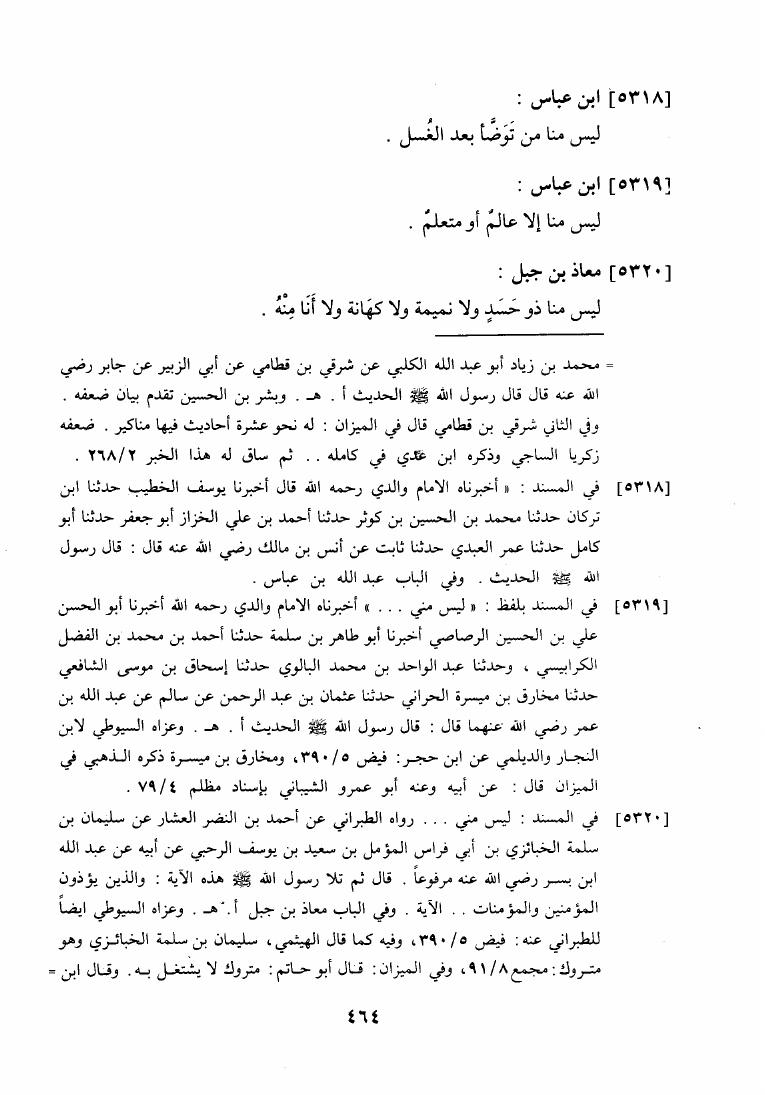 [٥٣١٨] ابن عباس :
ليس منا من تَوَضَّأ بعد الغُسل .
[٥٣١٩] ابن عباس :
ليس منا إلا عالمٌ أو متعلمٌ .
[٥٣٢٠] معاذ بن جبل :
ليس منا ذو حَسَدٍ ولا نميمة ولا كهَانة ولا أَنَا مِنْهُ .
= محمد بن زياد أبو عبد الله الكلبي عن شرقي بن قطامي عن أبي الزبير عن جابر رضي
الله عنه قال قال رسول الله ﷺ الحديث أ . هـ . وبشر بن الحسين تقدم بيان ضعفه .
وفي الثاني شرقي بن قطامي قال في الميزان : له نحو عشرة أحاديث فيها مناكير . ضعفه
زكريا الساجي وذكره ابن عدي في كامله . . ثم ساق له هذا الخبر ٢٦٨/٢ .
[٥٣١٨] في المسند : « أخبرناه الامام والدي رحمه الله قال أخبرنا يوسف الخطيب حدثنا ابن
تركان حدثنا محمد بن الحسين بن كوثر حدثنا أحمد بن علي الخزاز أبو جعفر حدثنا أبو
كامل حدثنا عمر العبدي حدثنا ثابت عن أنس بن مالك رضي الله عنه قال : قال رسول
الله ﷺ الحديث . وفي الباب عبد الله بن عباس .
[٥٣١٩] في المسند بلفظ : « ليس مني . . . » أخبرناه الامام والدي رحمه الله أخبرنا أبو الحسن
علي بن الحسين الرصاصي أخبرنا أبو طاهر بن سلمة حدثنا أحمد بن محمد بن الفضل
الكرابيسي ، وحدثنا عبد الواحد بن محمد البالوي حدثنا إسحاق بن موسى الشافعي
حدثنا مخارق بن ميسرة الحراني حدثنا عثمان بن عبد الرحمن عن سالم عن عبد الله بن
عمر رضي الله عنهما قال : قال رسول الله ﷺ الحديث أ . هـ . وعزاه السيوطي لابن
النجار والديلمي عن ابن حجر : فيض ٣٩٠/٥، ومخارق بن ميسرة ذكره الذهبي في
الميزان قال : عن أبيه وعنه أبو عمرو الشيباني بإسناد مظلم ٧٩/٤ .
[٥٣٢٠] في المسند : ليس مني . . . رواه الطبراني عن أحمد بن النضر العشار عن سليمان بن
سلمة الخبائزي بن أبي فراس المؤمل بن سعيد بن يوسف الرحبي عن أبيه عن عبد الله
ابن بسر رضي الله عنه مرفوعاً . قال ثم تلا رسول الله ﷺ هذه الآية : والذين يؤذون
المؤمنين والمؤمنات . . الآية . وفي الباب معاذ بن جبل أ . هـ . وعزاه السيوطي ايضاً
للطبراني عنه : فيض ٣٩٠/٥، وفيه كما قال الهيثمي، سليمان بن سلمة الخبائزي وهو
متروك : مجمع ٩١/٨، وفي الميزان : قال أبو حاتم : متروك لا يشتغل به . وقال ابن =
٤٦٤